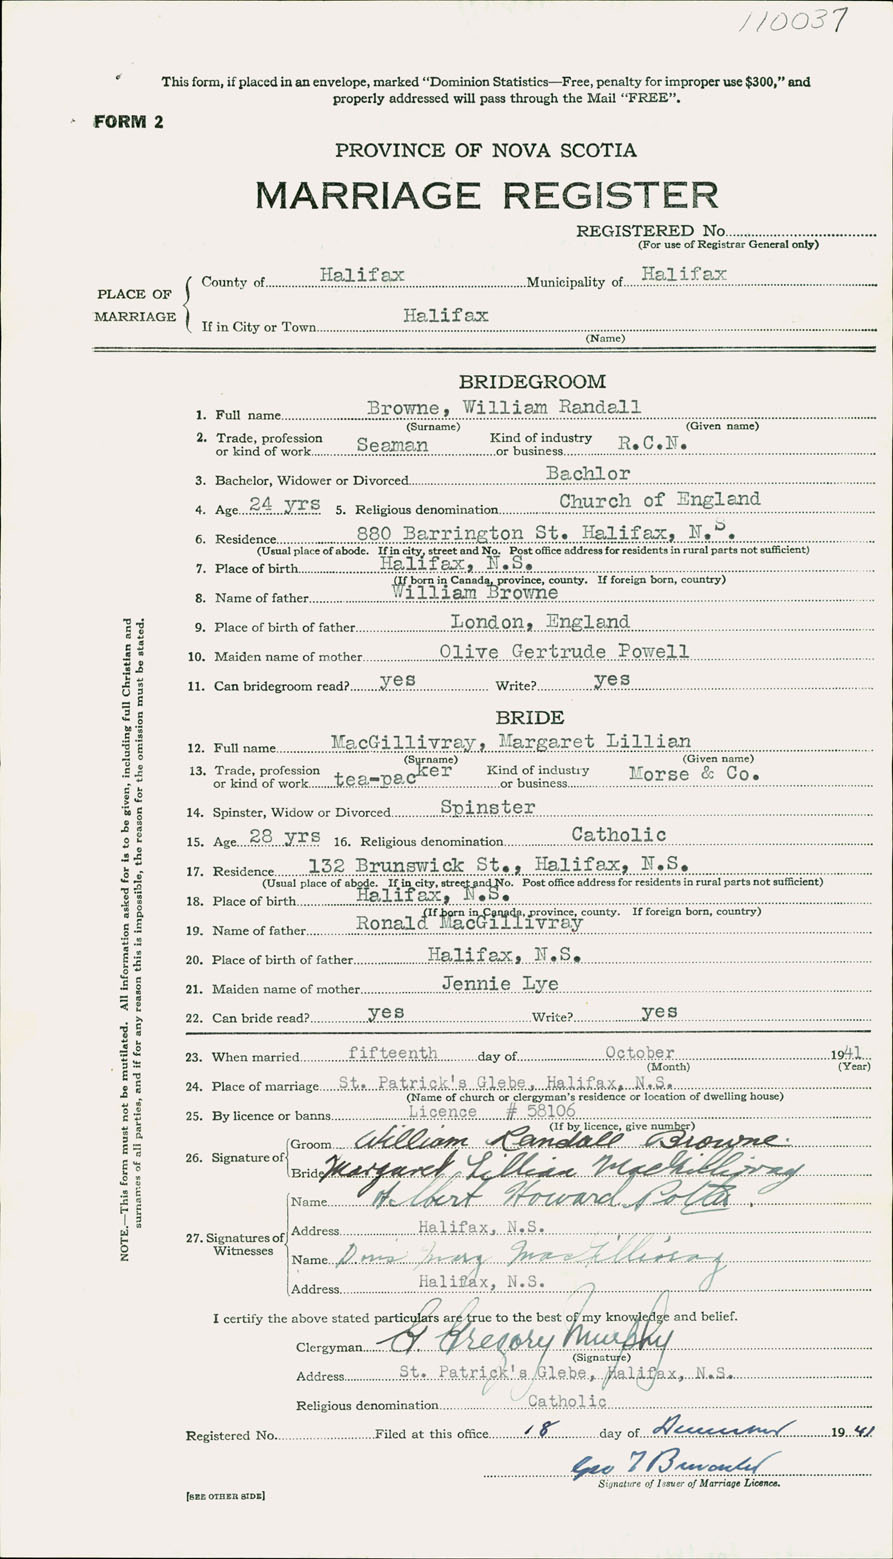 110037
This form, if placed in an envelope, marked “Dominion Statistics—Free, penalty for improper use $300,” and
properly addressed will pass through the Mail “FREE”.
FORM 2
PROVINCE OF NOVA SCOTIA
MARRIAGE REGISTER
REGISTERED No.
(For use of Registrar General only)
PLACE OF MARRIAGE
County of Halifax Municipality of Halifax
If in City or Town Halifax
(Name)
BRIDEGROOM
1. Full name Browne, William Randall
(Surname) (Given name)
2. Trade, profession or kind of work Seaman Kind of industry or business R.C.N.
3. Bachelor, Widower or Divorced Bachlor
4. Age 24 yrs 5. Religious denomination Church of England
6. Residence 880 Barrington St. Halifax, N.S.
(Usual place of abode. If in city, street and No. Post office address for residents in rural parts not sufficient)
7. Place of birth Halifax, N.S.
(If born in Canada, province, county. If foreign born, country)
8. Name of father William Browne
9. Place of birth of father London, England
10. Maiden name of mother Olive Gertrude Powell
11. Can bridegroom read? yes Write? yes
BRIDE
12. Full name MacGillivray, Margaret Lillian
(Surname) (Given name)
13. Trade, profession or kind of work tea-packer Kind of industry or business Morse & Co.
14. Spinster, Widow or Divorced Spinster
15. Age 28 yrs 16. Religious denomination Catholic
17. Residence 132 Brunswick St., Halifax, N.S.
(Usual place of abode. If in city, street and No. Post office address for residents in rural parts not sufficient)
18. Place of birth Halifax, N.S.
(If born in Canada, province, county. If foreign born, country)
19. Name of father Ronald MacGillivray
20. Place of birth of father Halifax, N.S.
21. Maiden name of mother Jennie Lye
22. Can bride read? yes Write? yes
23. When married fifteenth day of October 1941
(Month) (Year)
24. Place of marriage St. Patrick's Glebe, Halifax, N.S.
(Name of church or clergyman's residence or location of dwelling house)
25. By licence or banns Licence # 58106
(If by licence, give number)
26. Signature of
Groom William Randall Browne.
Bride Margaret Lillian MacGillivray
27. Signatures of Witnesses
Name Albert Howard
Address Halifax, N.S.
Name Doris Mary MacGillivray
Address Halifax, N.S.
I certify the above stated particulars are true to the best of my knowledge and belief.
Clergyman Gregory Murphy
(Signature)
Address St. Patrick's Glebe, Halifax, N.S.
Religious denomination Catholic
Registered No. Filed at this office 18 day of December 1941
Geo
Signature of Issuer of Marriage Licence.
[SEE OTHER SIDE]
NOTE.—This form must not be mutilated. All information asked for is to be given, including full Christian and
surnames of all parties, and if for any reason this is impossible, the reason for the omission must be stated.